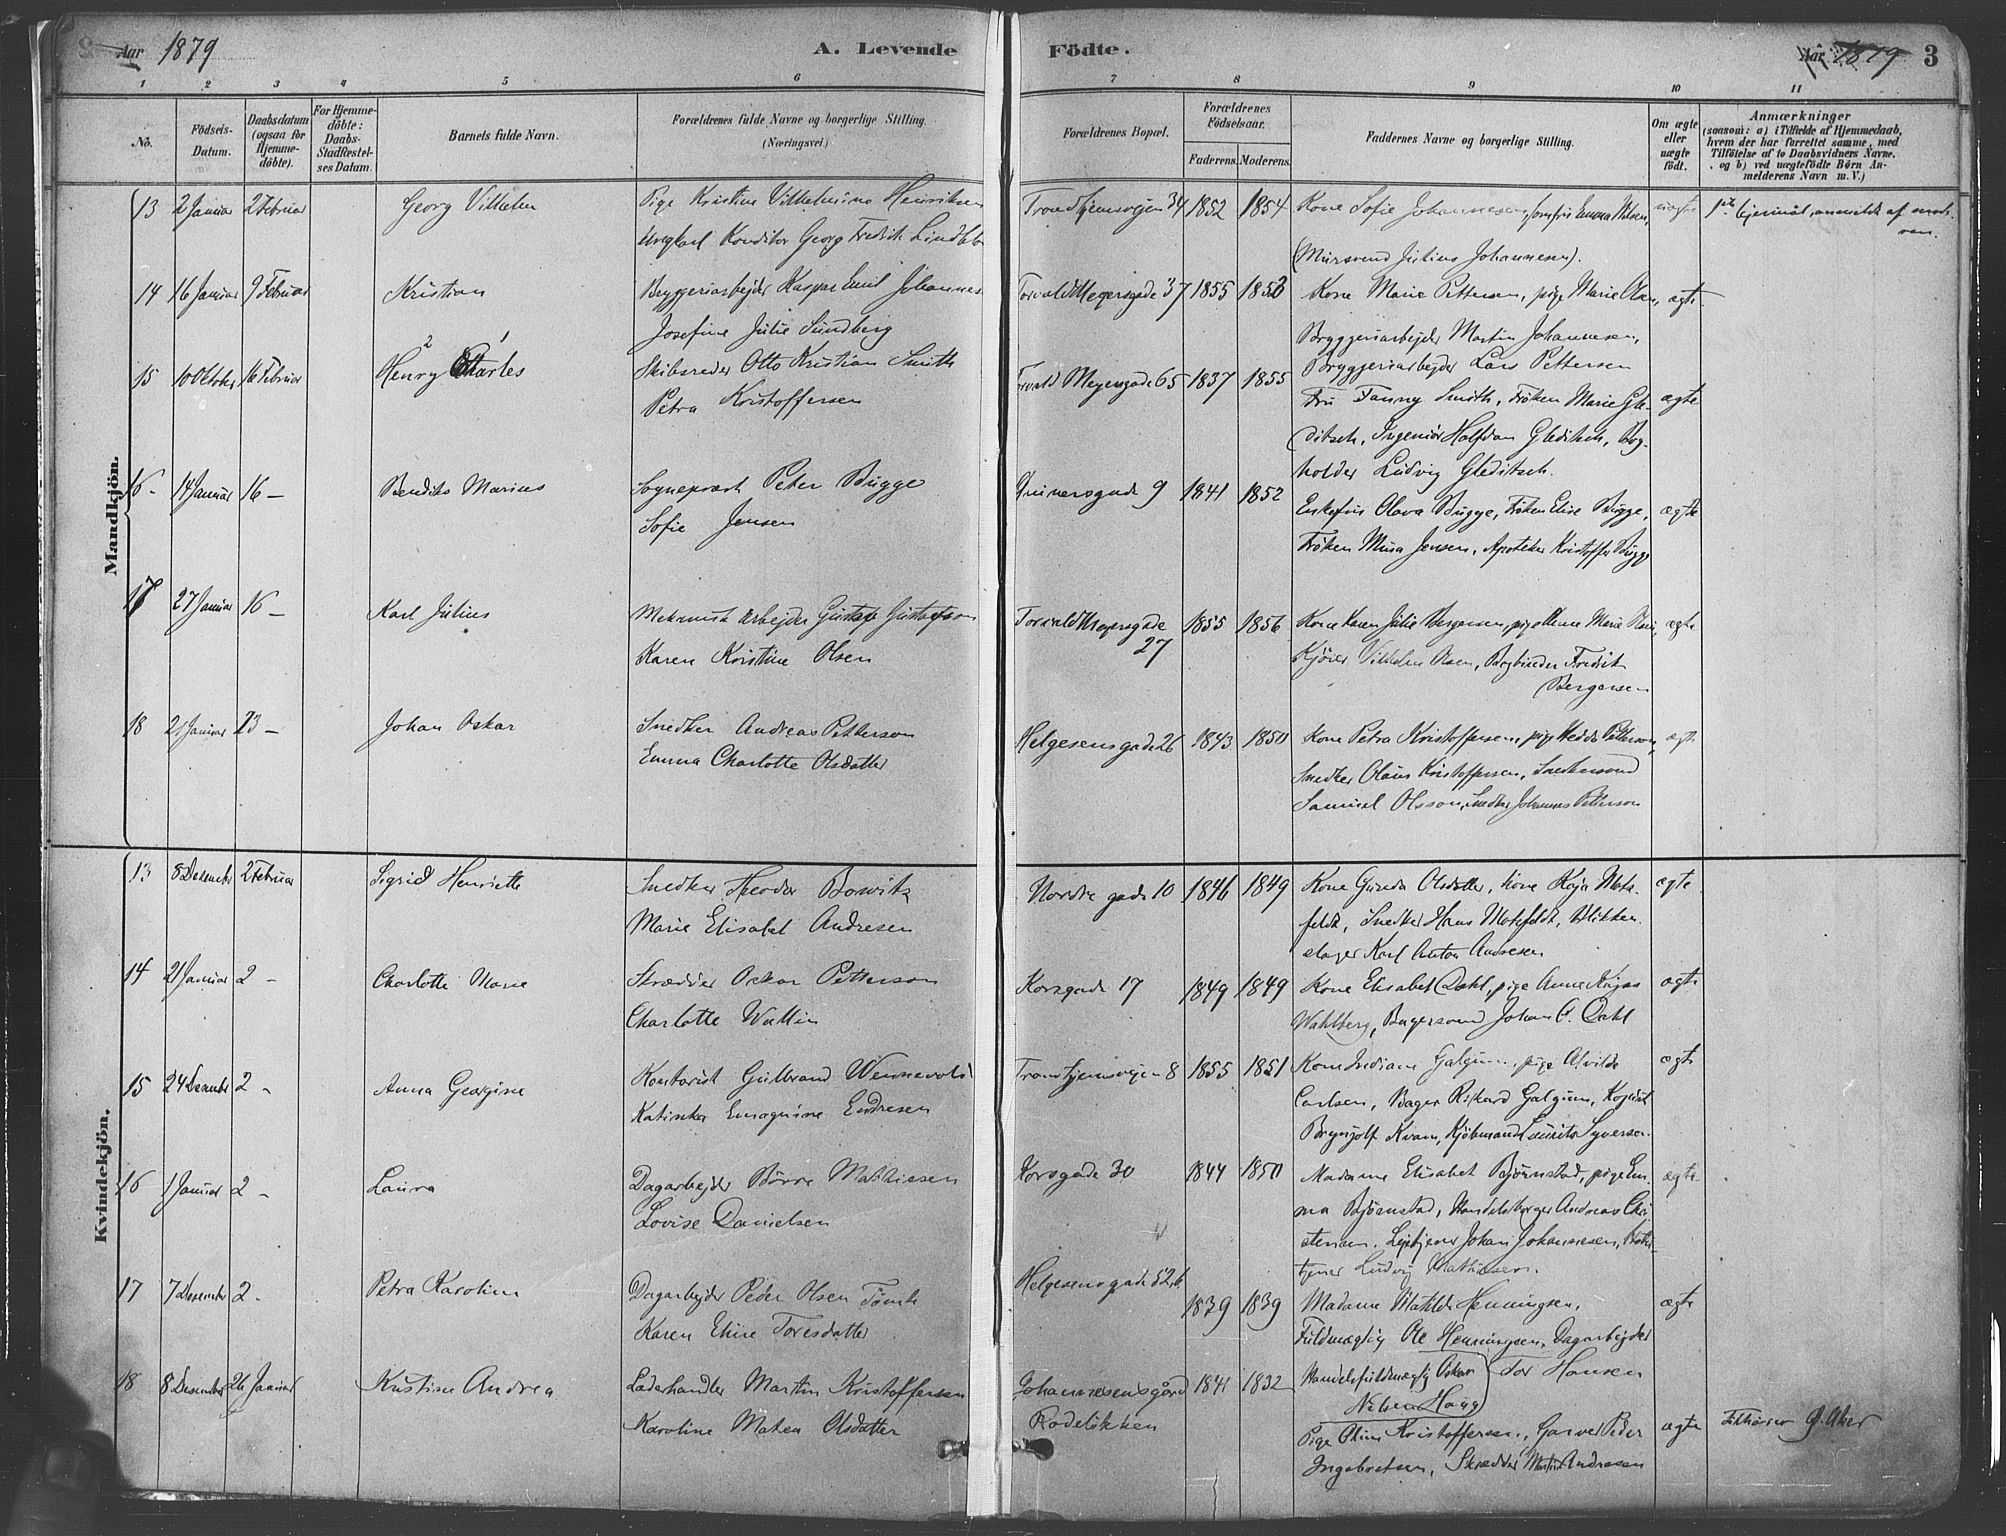 Aar 1879
A. Levende Födte.
Aar 1879 3
1 2 3 4 5 6 7 8 9 10 11
No.
Födsels-
Datum.
Daabsdatum
(ogsaa for
Hjemme-
döbte).
For Hjemme-
döbte:
Daabs-
Stadfæstel-
ses Datum.
Barnets fulde Navn.
Forældrenes fulde Navne og borgerlige Stilling.
(Næringsvei.)
Forældrenes Bopæl.
Forældrenes
Födselsaar.
Faderens. Moderens.
Faddernes Navne og borgerlige Stilling.
Om ægte
eller
uægte
födt.
Anmærkninger
(saasom: a) i Tilfælde af Hjemmedaab,
hvem der har forrettet samme, med
Tilföielse af to Daabsvidners Navne,
og b) ved uægtefödte Börn An-
melderens Navn m. V.)
Mandkjön.
13 2 Januar 2 Februar Georg Vilhelm Pige Kristine Vilhelmine Henriksen Trondhjemsvejen 34 1852 1854 Kone Sofie Johannesen, Emma Nilsen, uægte
Ungkarl Konditor Georg Fredrik
(Mursvend Julius Johannesen).
14 16 Januar 9 Februar Kristian Bryggeriarbejder Kaspar Emil Johannes Torvald Meyersgade 37 1855 1853 Kone Marie Pettersen, pige Marie Olsen, ægte
Josefine Julie Sundberg Bryggeriarbejder Martin Johannesen,
Bryggeriarbejder Lars Pettersen
15 10 Oktober 16 Februar Henry Charles Skibsreder Otto Kristian Smith Torvald Meyersgade 65 1837 1855 Fru Fanny Smith, Fröken Marie Gle- ægte
Petra Kristoffersen ditsch, Ingeniör Halfdan Gleditsch, Bog-
holder Ludvig Gleditsch.
16 14 Januar 16 — Bendiks Marius Sogneprest Peter Bugge 9 1841 1852 Enkefru Olava Bugge, Fröken Elise Bugge, ægte
Sofie Jensen Fröken Jensen, Apoteker Kristoffer Bugge
17 27 Januar 16 — Karl Julius Mekanisk Arbejder Gustaf Gustafson Torvald Meyersgade 27 1855 1856 Kone Karen Julie Bergersen, pige Marie ægte
Karen Kristine Olsen Kjörer Vilhelm Olsen, Bogbinder Fredrik
Bergersen
18 21 Januar 23 — Johan Oskar Snedker Andreas Petterson Helgesensgade 26 1843 1850 Kone Petra Kristoffersen, pige Hedda Petterson, ægte
Emma Charlotte Olsdatter Snedker Olaus Kristoffersen, Snedkersvend
Samuel Olsson, Snedker Johannes Petterson
Kvindekjön.
13 8 Desember 2 Februar Sigrid Henriette Snedker Theodor Nordre gade 10 1846 1849 Kone Gunda Olsdatter, Kone Kaja Mots- ægte
Marie Elisabet Andresen feldt, Snedker Hans Motsfeldt, Blikken-
slager Karl Anton Andresen
14 21 Januar 2 — Charlotte Marie Skrædder Oskar Petterson Korsgade 17 1849 1849 Kone Elisabet Dahl, pige Anna ægte
Charlotte Wallin Wahlberg, Bagersvend Johan A. Dahl
15 24 Desember 2 — Anna Georgine Kontorist Gulbrand Trondhjemsvejen 8 1855 1851 Kone Indiane Galgum, pige Alvilde ægte
Katinka Endresen Carlsen, Bager Rikard Galgum, Kopist
Brynjolf Kvam, Kjöbmand Laurits Syversen
16 1 Januar 2 — Laura Dagarbejder Börre Mathiesen Korsgade 30 1844 1850 Madame Elisabet Björnstad, pige Em- ægte
Lovise Danielsen ma Björnstad, Handelsborger Andreas Chri-
stensen, Johan Johannesen,
tjener Ludvig Mathiesen.
17 7 Desember 2 — Petra Karoline Dagarbejder Peder Olsen Helgesensgade 52 b 1839 1839 Madame Matilde Henningsen, ægte
Karen Eline Toresdatter Fuldmægtig Ole Henningsen, Dagarbejder
Tor Hansen
Handelsfuldmægtig Oskar
Nielsen Haug
18 8 Desember 26 Januar Kristine Andrea Læderhandler Martin Kristoffersen Johannesensgård 1841 1832
Karoline Matea Olsdatter Rodelökken Pige Oline Kristoffersen, Garver Peder ægte Tilhörer Ö. Aker
Ingebretsen, Skrædder Martin Andresen